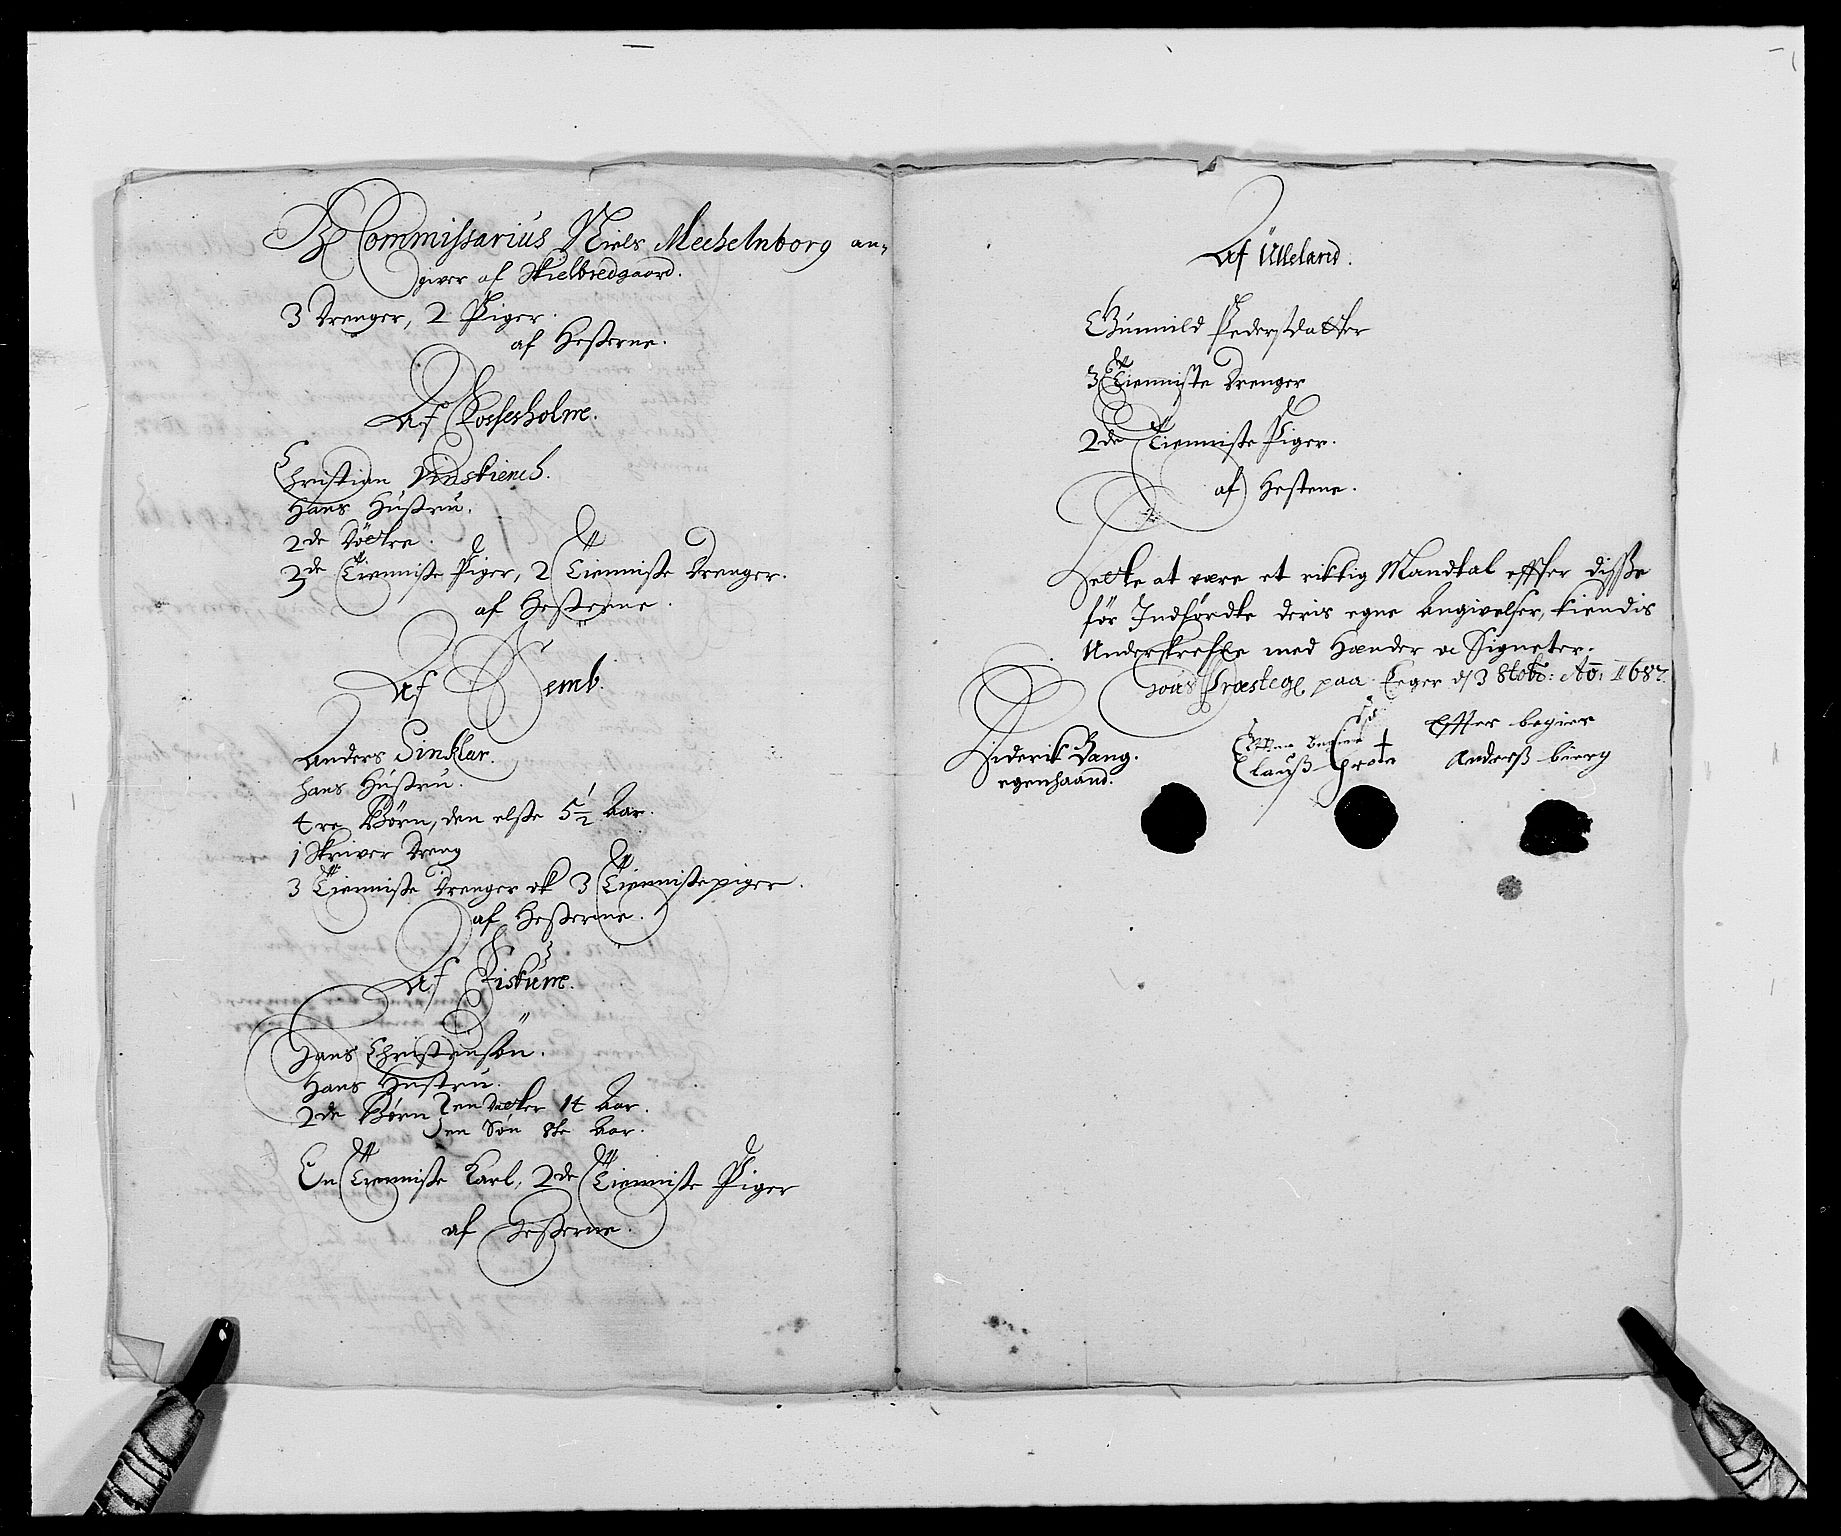 Hr Commissarius Niels Mechelnborg an-
giver af Skielbredgaard.
3 Drenger, 2 Piger.
af Hesterne.
Af Fossesholm.
Christian Vinskienck.
Hans Hustru.
2de Döttre.
3de Tienniste Piger, 2 Tienniste Drenger.
af Hesterne.
Af Semb.
Anders Sinklar.
Hans Hustru.
4re Børn, den elste 5½ Aar.
1 Skriver Dreng
3 Tienniste Drenger ok 3 Tiennistepiger.
af Hesterne.
Af Fiskum.
Hans Christensön.
Hans Hustru.
2de Børn en Datter 14 Aar.
en Søn 8te Aar.
En Tienniste Karl, 2de Tienniste Piger
af Hesterne.
Af Ulleland.
Gunnild Pedersdatter
3 Tienniste Drenger
2de Tienniste Piger.
af Hestene.
Dette at være et riktig Mandtal effter disse
för Indførdte deris egne Angivelser, kiendis
Underskrefne med Hænder oc Signeter.
Præsteg paa Eeger d 3 8tobr: Ao: 1687.
Diderik Bang.
egenhaand.
Effter begier
Clauss Grote
Effter begier
Anderss bierg